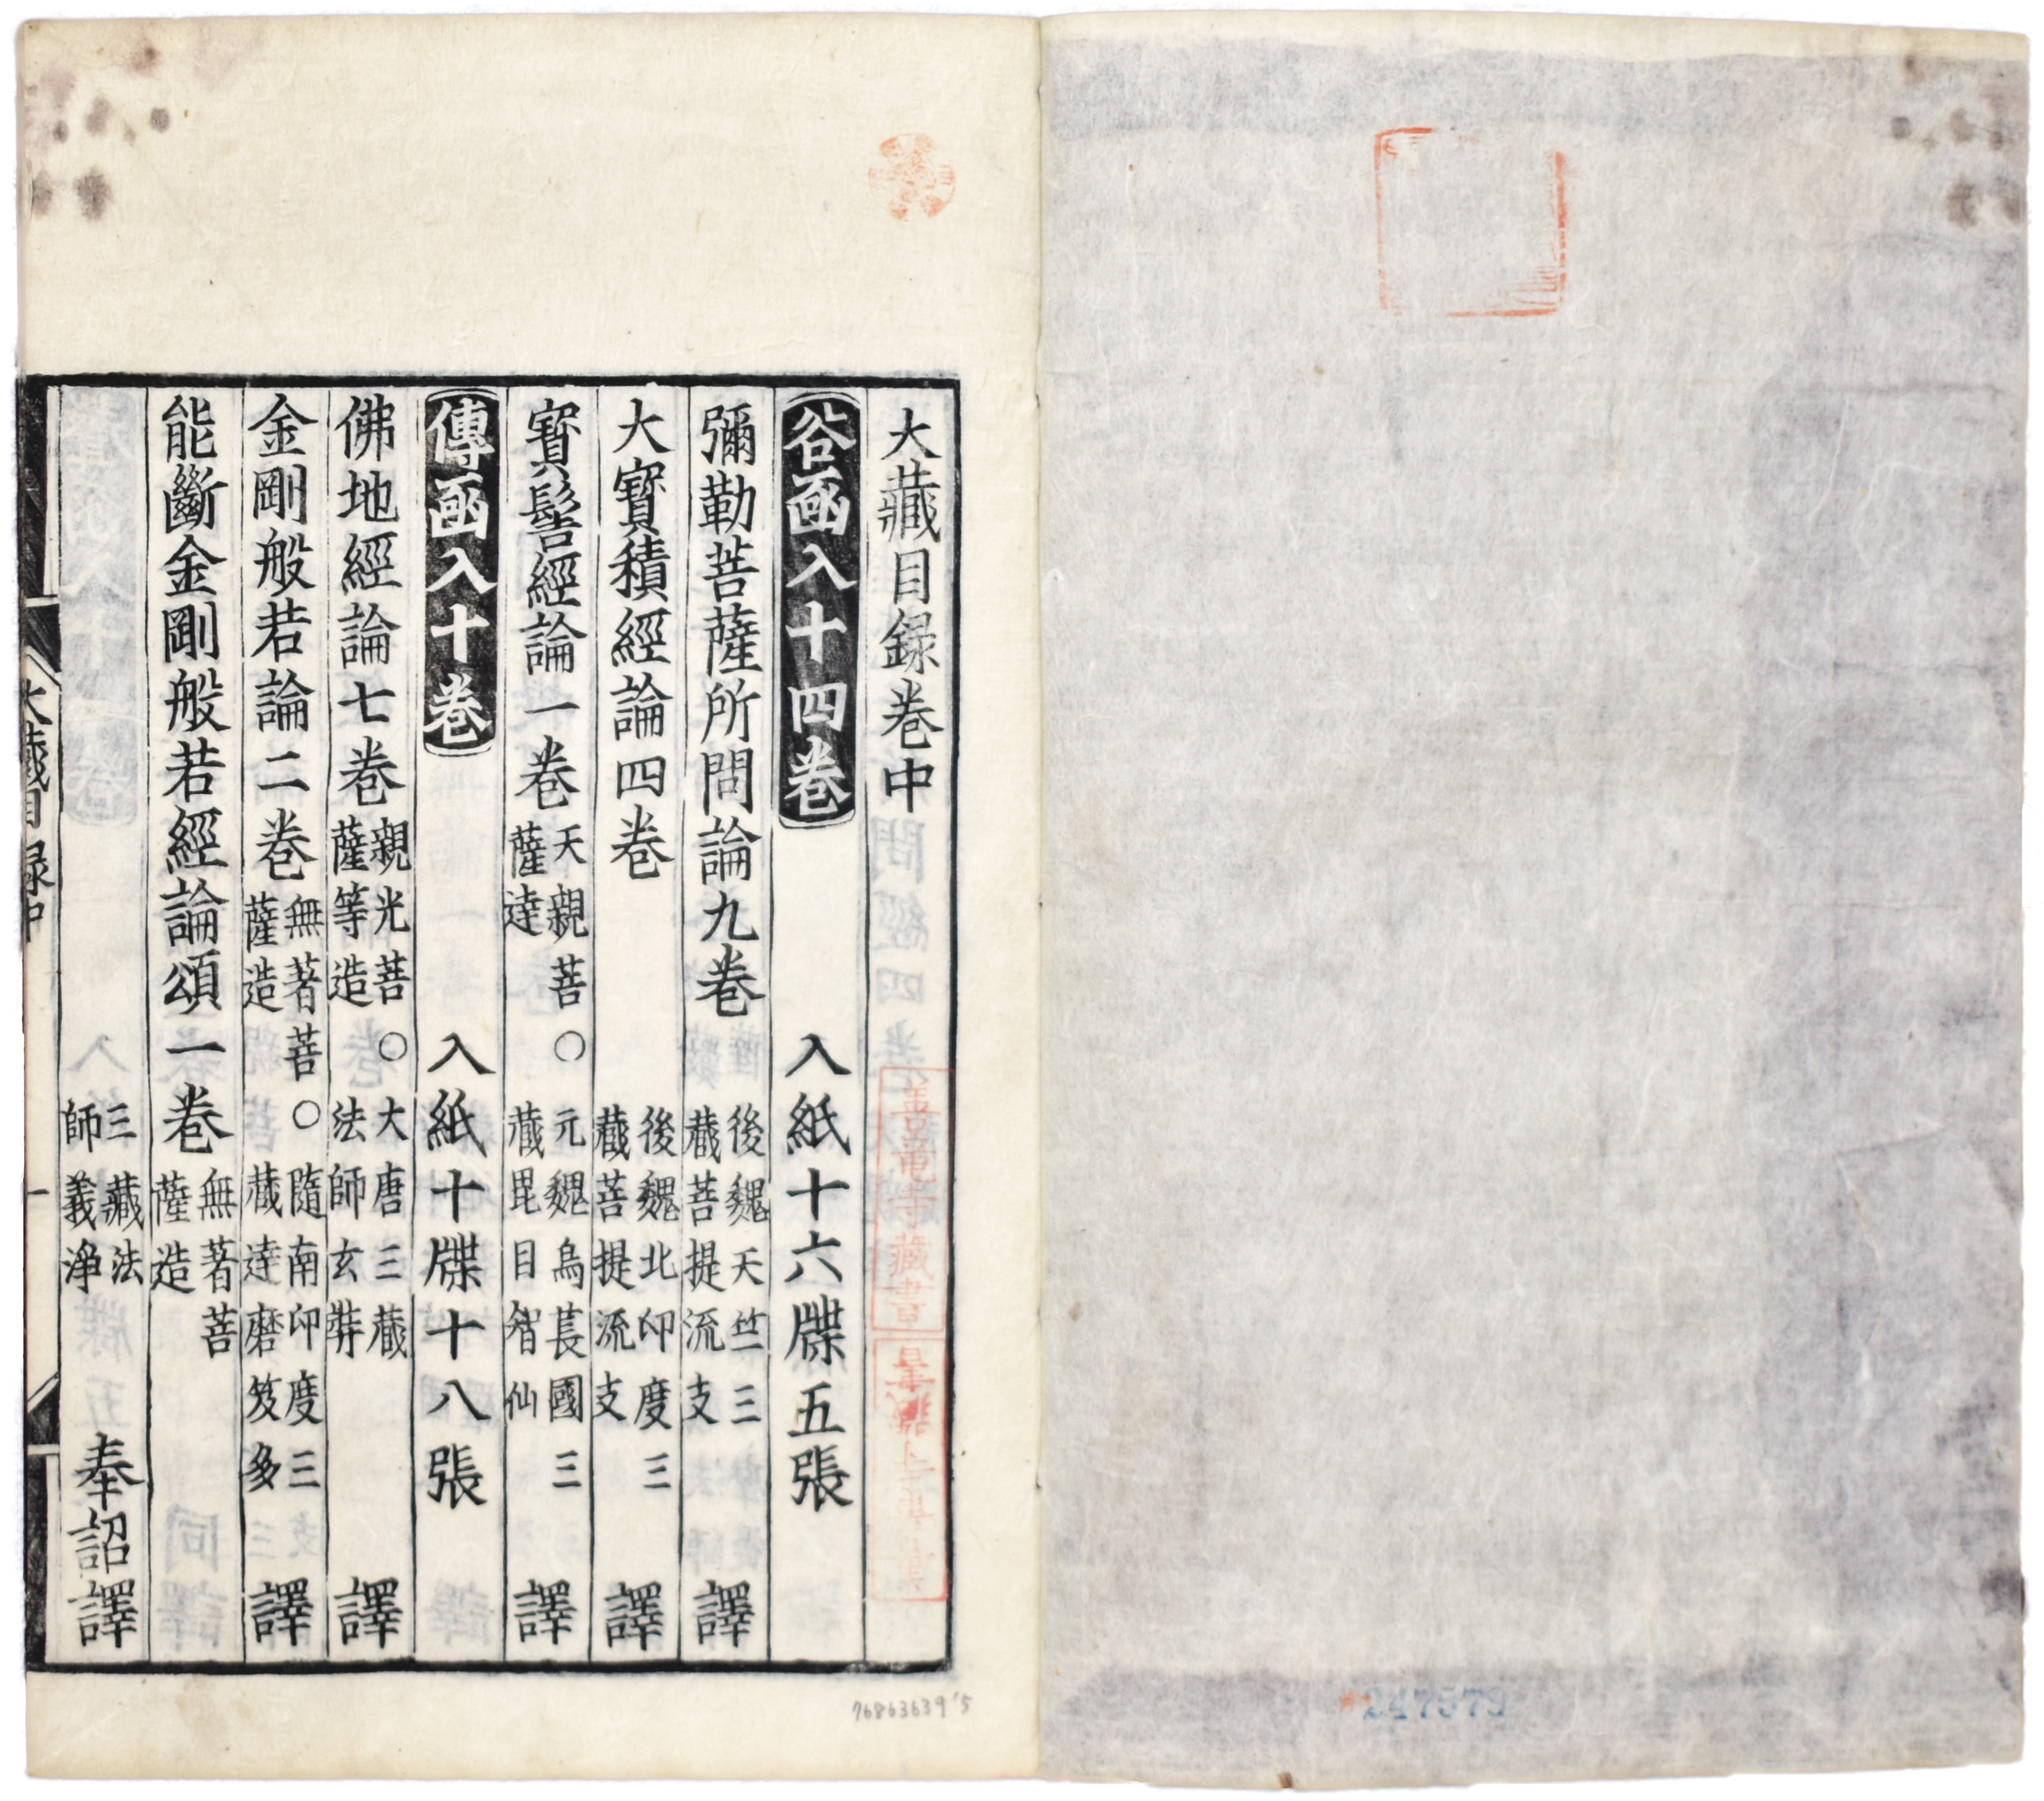 大藏目録卷中
谷函入十四卷 入紙十六牒五張
彌勒菩薩所問論九卷 後魏天竺三藏菩提流支 譯
大寳積經論四卷 後魏北印度三藏菩提流支 譯
寳髻經論一卷 天親菩薩造 ○ 元魏烏萇國三藏毘目智仙 譯
傳函入十卷 入紙十牒十八張
佛地經論七卷 親光菩薩等造 ○ 大唐三藏法師玄奘 譯
金剛般若論二卷 無著菩薩造 ○ 隨南印度三藏達磨笈多 譯
能斷金剛般若經論頌一卷 無著菩薩造
三藏法師義淨 奉詔譯
大藏目録中 一
善竜寺藏書
76863639'5
247579